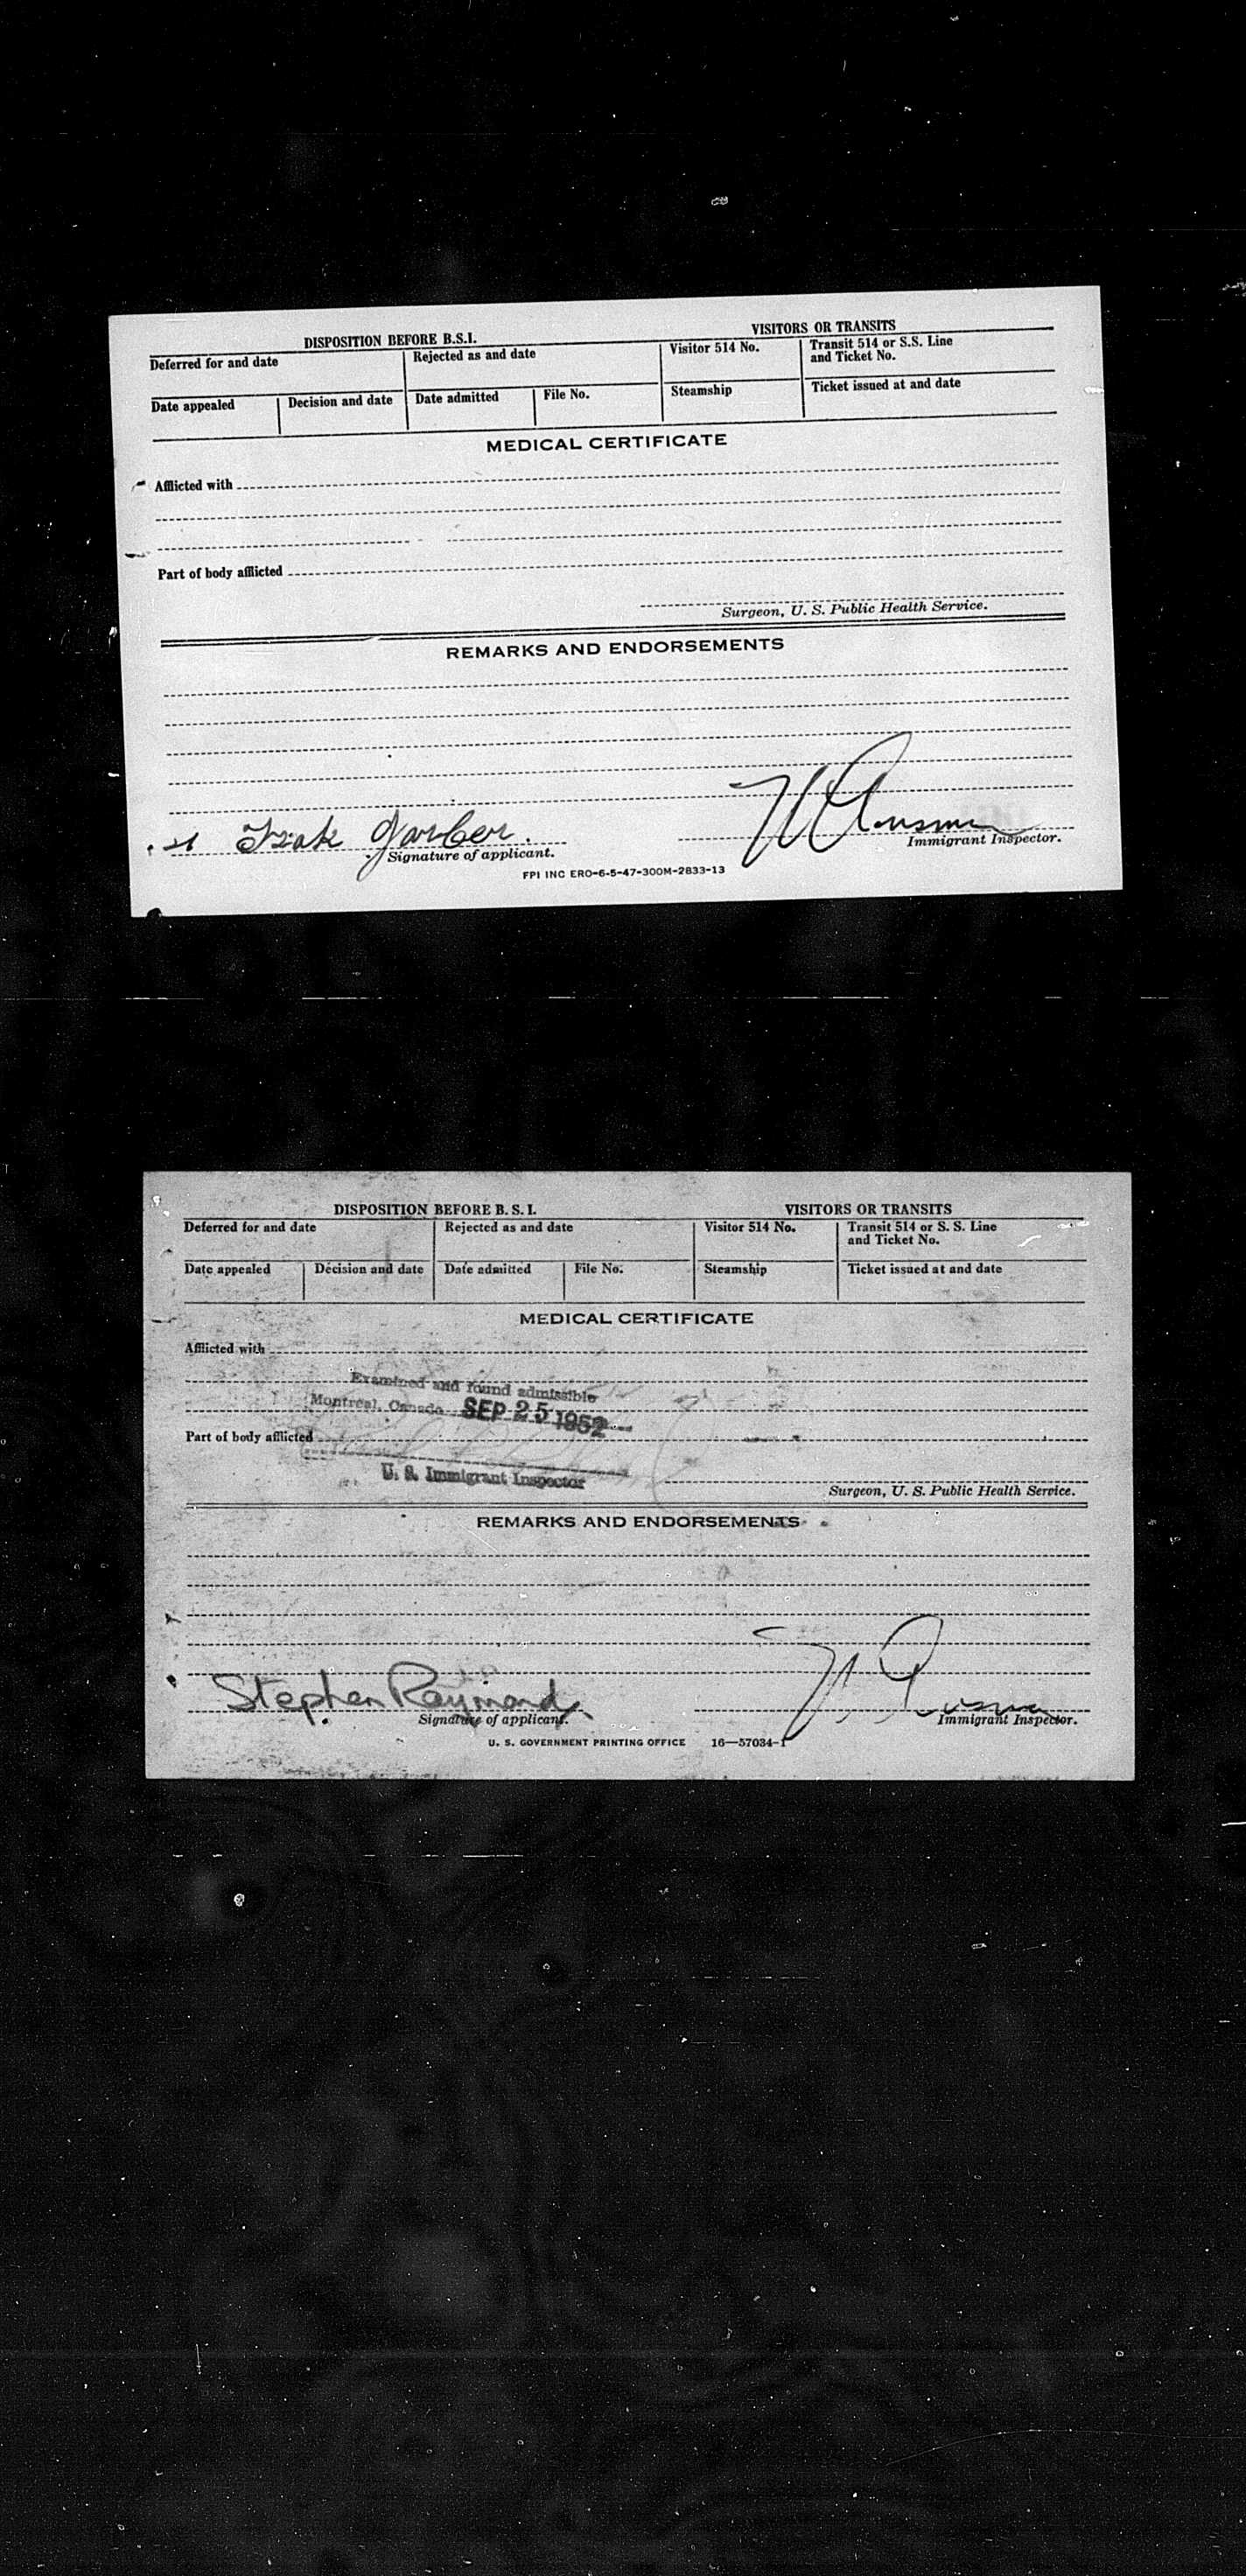 DISPOSITION BEFORE B.S.I. VISITORS OR TRANSITS
Deferred for and date Rejected as and date Visitor 514 No. Transit 514 or S.S. Line
and Ticket No.
Date appealed Decision and date Date admitted File No. Steamship Ticket issued at and date
MEDICAL CERTIFICATE
Afflicted with
Part of body afflicted
Surgeon, U. S. Public Health Service.
REMARKS AND ENDORSEMENTS
Garber
Signature of applicant. Immigrant Inspector.
FPI INC ERO-6-5-47-300M-2833-13
DISPOSITION BEFORE B. S. I. VISITORS OR TRANSITS
Deferred for and date Rejected as and date Visitor 514 No. Transit 514 or S. S. Line
and Ticket No.
Date appealed Decision and date Date admitted File No. Steamship Ticket issued at and date
MEDICAL CERTIFICATE
Afflicted with
Examined and found admissible
Montreal, Canada SEP 25 1952
Part of body afflicted
U. S. Immigrant Inspector
Surgeon, U. S. Public Health Service.
REMARKS AND ENDORSEMENTS
Stephen Raymond
Signature of applicant. Immigrant Inspector.
U. S. GOVERNMENT PRINTING OFFICE 16—57034-1